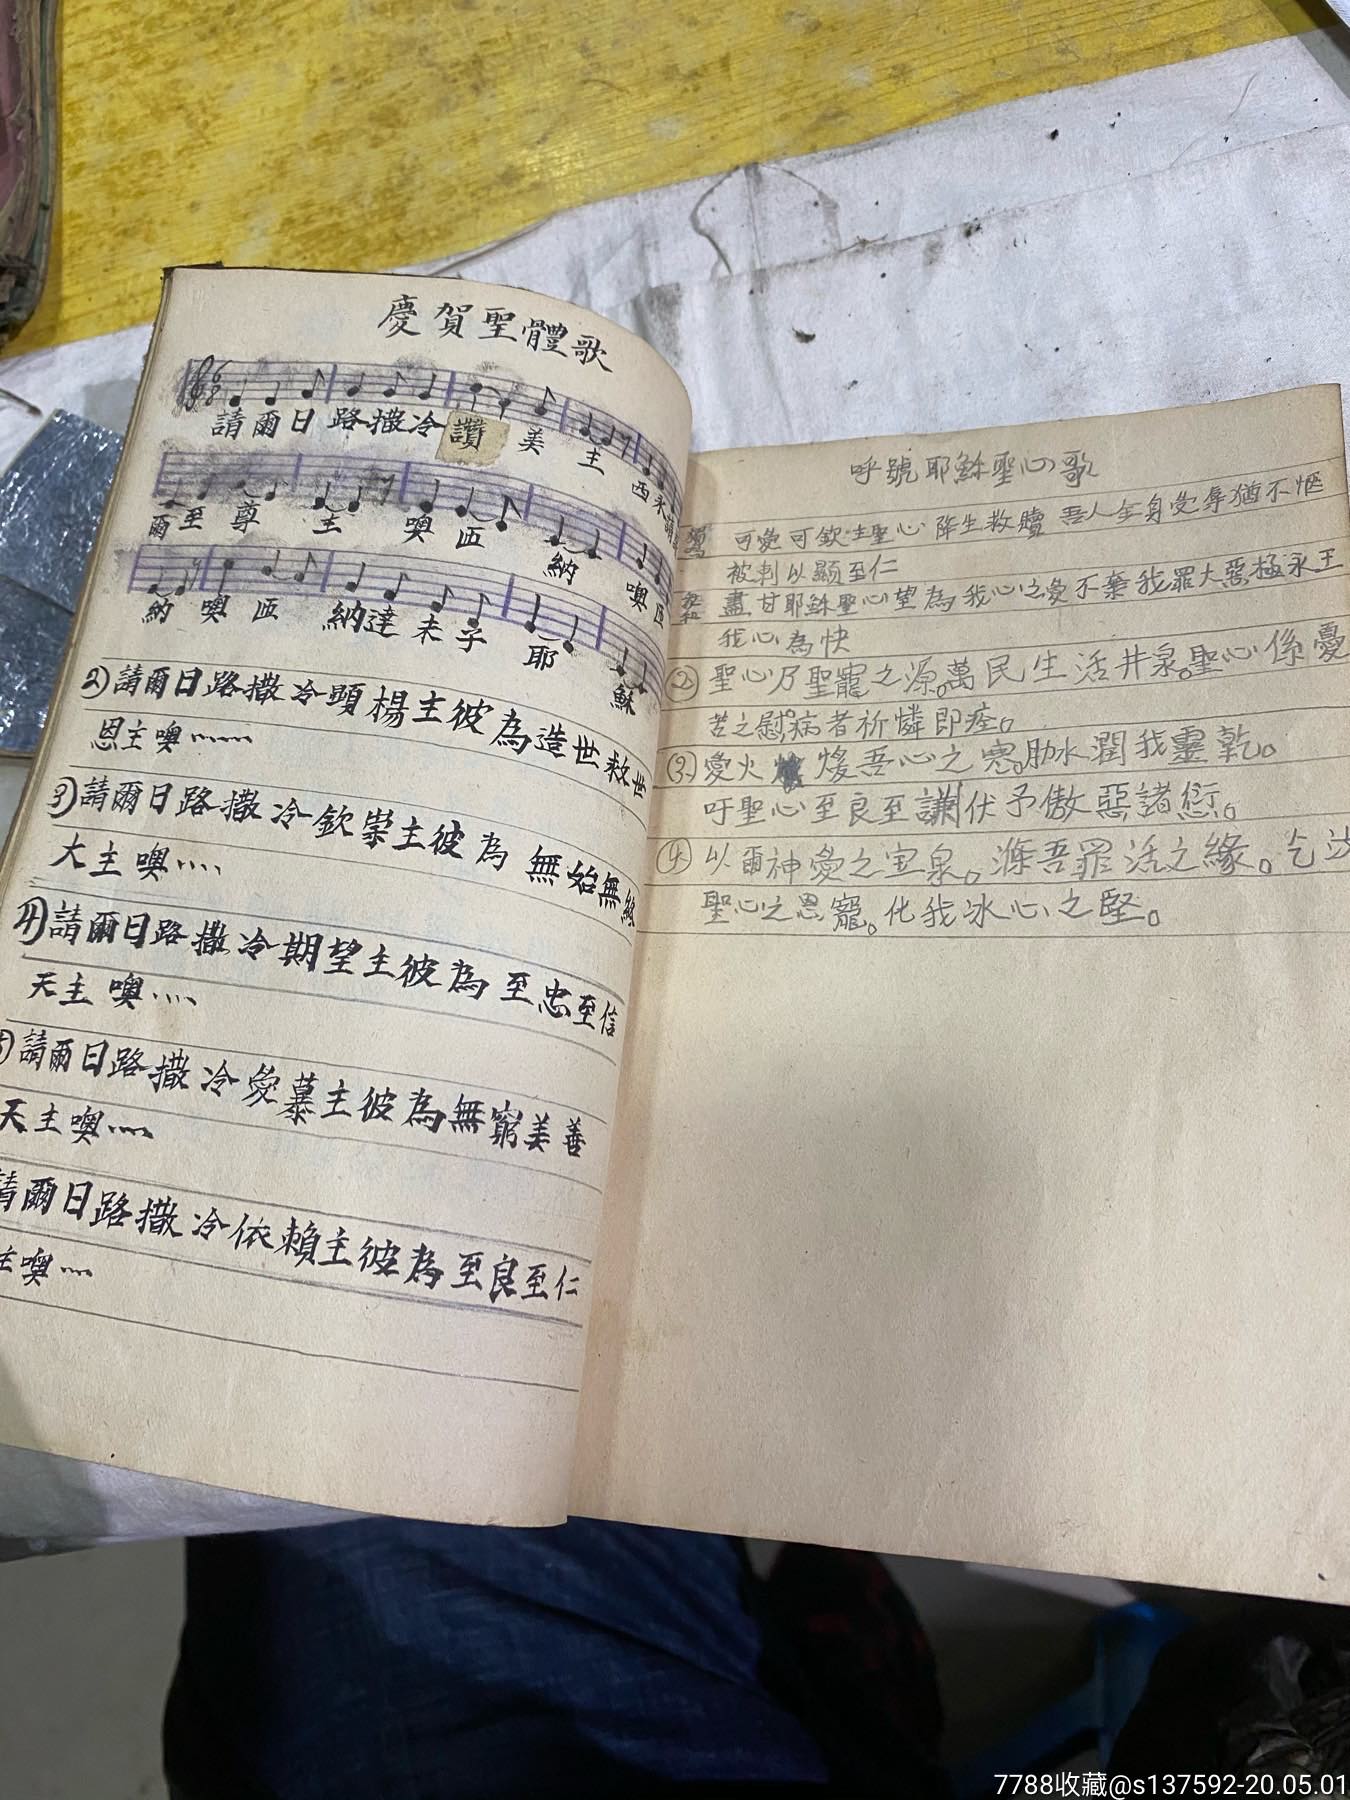 慶賀聖體歌
6
8
請爾日路撒冷讚美主西永
爾至尊主噢匝納噢匝
納噢匝納達未子耶穌
2)請爾日路撒冷頌楊主彼為造世救世
恩主噢……
3)請爾日路撒冷欽崇主彼為無始無終
大主噢….
4)請爾日路撒冷期望主彼為至忠至信
天主噢….
5)請爾日路撒冷愛慕主彼為無窮美善
天主噢….
請爾日路撒冷依賴主彼為至良至仁
主噢….
呼號耶穌聖心歌
獨唱 可愛可欽主聖心降生救贖吾人全身受辱猶不愜
被刺以顯至仁
盡甘耶穌聖心望為我心之愛不棄我罪大惡極永王
我心為快
② 聖心乃聖寵之源。萬民生活井泉。聖心係憂
苦之慰。病者祈憐即痊。
③ 愛火煖吾心之寒。肋水潤我靈乾。
吁聖心至良至謙伏予傲惡諸愆。
④ 以爾神愛之宝泉。滌吾罪活之緣。乞
聖心之恩寵。化我冰心之堅。
7788收藏@s137592-20.05.01